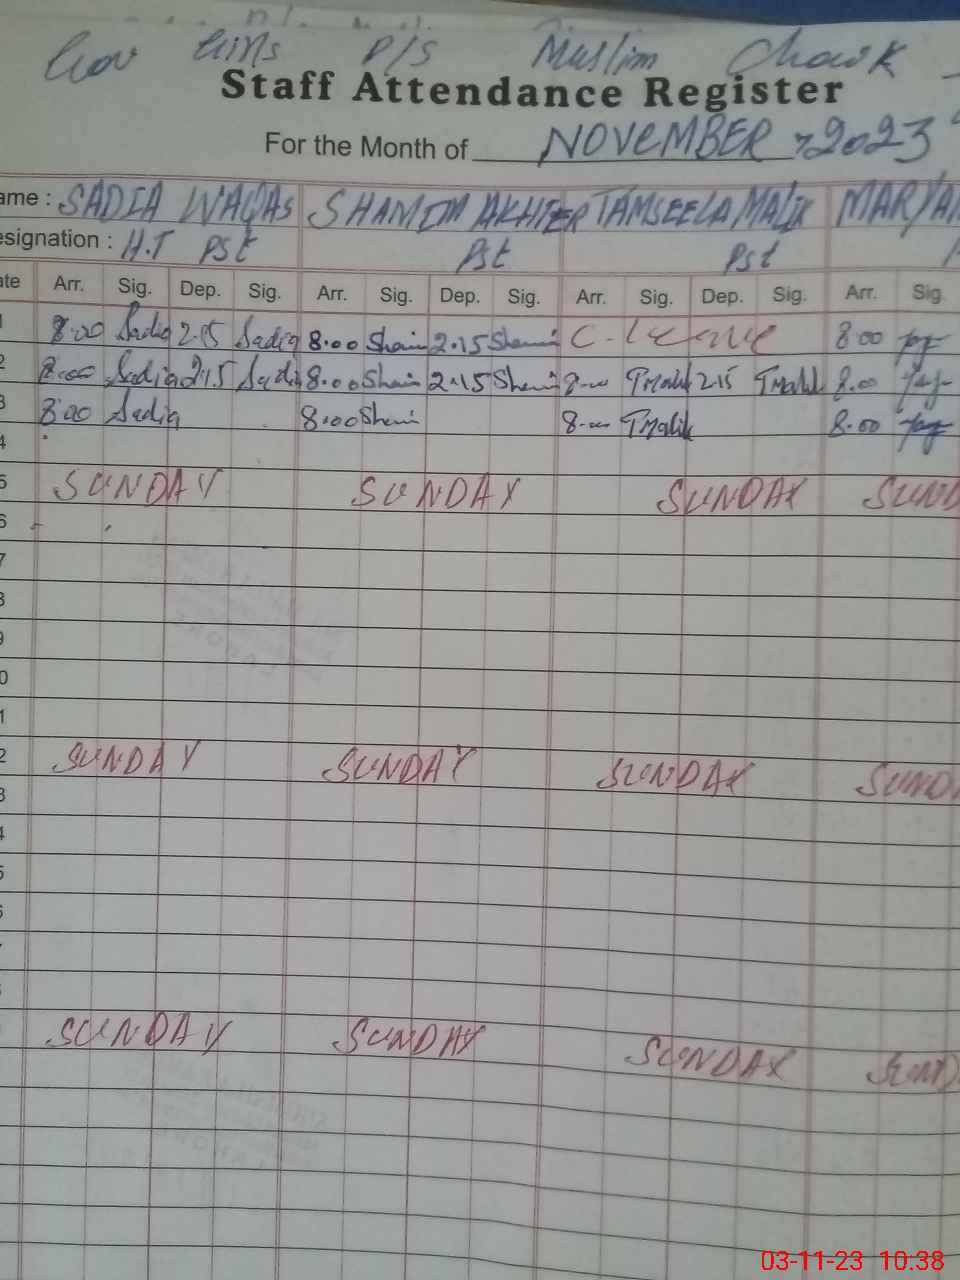 Gov Girls P/S Muslim Chowk
Staff Attendance Register
For the Month of NOVEMBER, 2023
ame : SADIA WAQAS SHAMIM AKHTER TAMSEELA MALIK MARYAM
esignation : H.T PST PST PST
ate Arr. Sig. Dep. Sig. Arr. Sig. Dep. Sig. Arr. Sig. Dep. Sig. Arr. Sig.
1 8:00 Sadia 2:15 Sadia 8.00 Sham 2.15 Shamim C. Leave 8.00
2 8:00 Sadia 2:15 Sadia 8.00 Sham 2.15 Sham 8.00 TMalik 2.15 TMalik 8.00
3 8:00 Sadia 8.00 Sham 8.00 TMalik 8.00
4
5 SUNDAY SUNDAY SUNDAY SUND
6
7
8
9
0
1
2 SUNDAY SUNDAY SUNDAY SUND
3
4
5
6
SUNDAY SUNDAY SUNDAY SUND
03-11-23 10:38